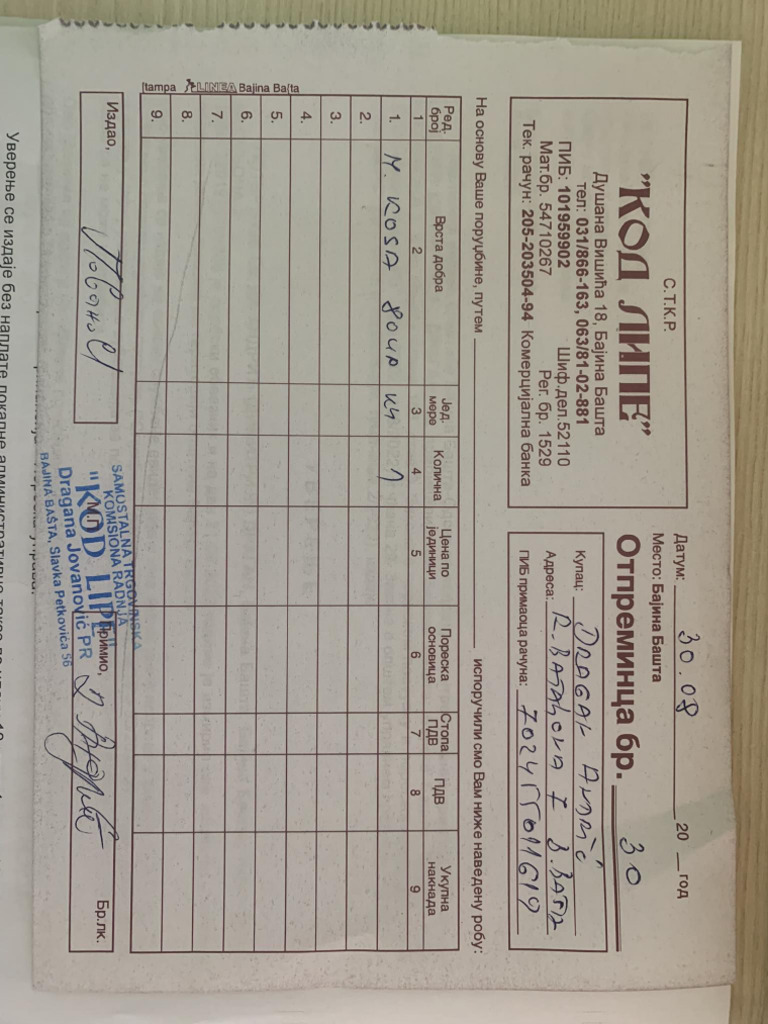 С.Т.К.Р.
"КОД ЛИПЕ"
Душана Вишића 18, Бајина Башта
тел: 031/866-163, 063/81-02-881
ПИБ: 101959902 Шиф.дел.52110
Мат.бр. 54710267 Рег. бр. 1529
Тек. рачун: 205-203504-94 Комерцијална банка
Датум: 30.08 20 __ год
Место: Бајина Башта
Отпреминца бр. 30
Купац: DRAGAN ANDRIĆ
Адреса: R. BATAKOVA 7 B.BAŠTA
ПИБ примаоца рачуна:
На основу Ваше поруџбине, путем ______ испоручили смо Вам ниже наведену робу:
Ред. број Врста добра Јед. мере Колична Цена по јединици Пореска основица Стопа ПДВ ПДВ Укупна накнада
1 2 3 4 5 6 7 8 9
1. M. KOSA
2.
3.
4.
5.
6.
7.
8.
9.
[tampa LINEA Bajina Ba[ta
Издао,
М.П.
Примио,
Бр.лк.
SAMOSTALNA TRGOVINSKA
KOMISIONA RADNJA
"KOD LIPE"
Dragana Jovanović PR
BAJINA BAŠTA, Slavka Petkovića 56
Уверење се издаје без наплате локалне административне таксе